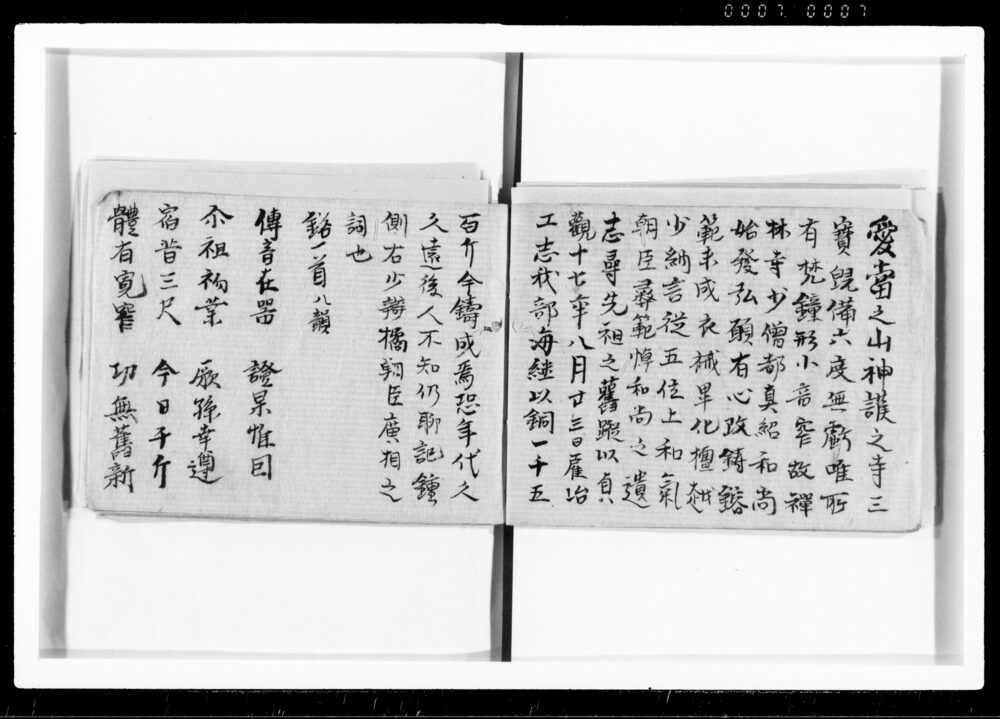 0007 0007
愛當之山神護之寺三
寶既備六度無虧唯所
有梵鐘形小音窄故禪
林寺少僧都真紹和尚
始發弘願有心改鋳鎔
範未成衣祴畢化檀越
少納言從五位上和氣
朝臣彝範悼和尚之遺
志尋先祖之舊蹤以貞
觀十七年八月廿三日雇冶
工志我部海継以銅一千五
百斤令鑄成焉恐年代久
久遠後人不知仍聊記鍾
側右少辯橘朝臣廣相之
詞也
銘一首八韻
傳音在器 證果惟因
尒祖初業 厥孫幸遵
宿昔三尺 今日千斤
體有寬窄 功無舊新